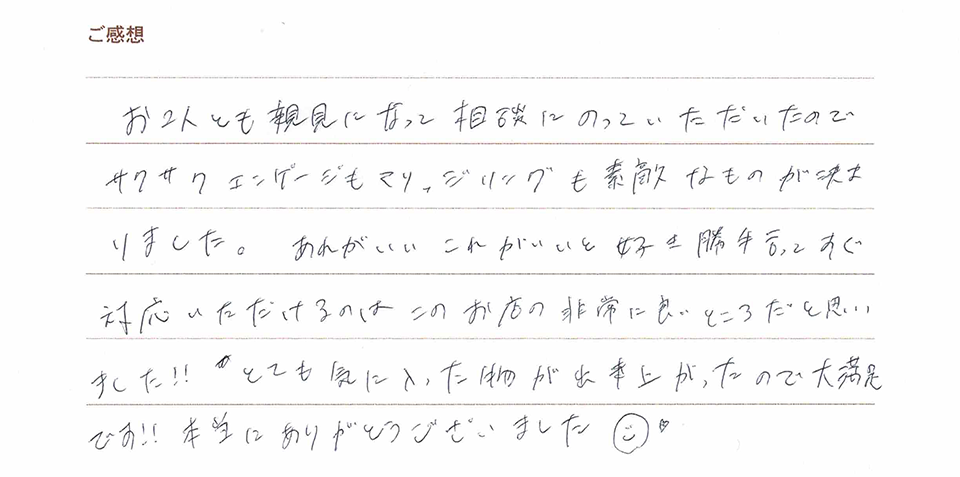 ご感想
お2人とも親見になって相談にのっていただいたので
サクサクエンゲージもマリッジリングも素敵なものが決ま
りました。あれがいいこれがいいと好き勝手言ってすぐ
対応いただけるのはこのお店の非常に良いところだと思い
ました!! とても気に入った物が出来上がったので大満足
です!! 本当にありがとうございました